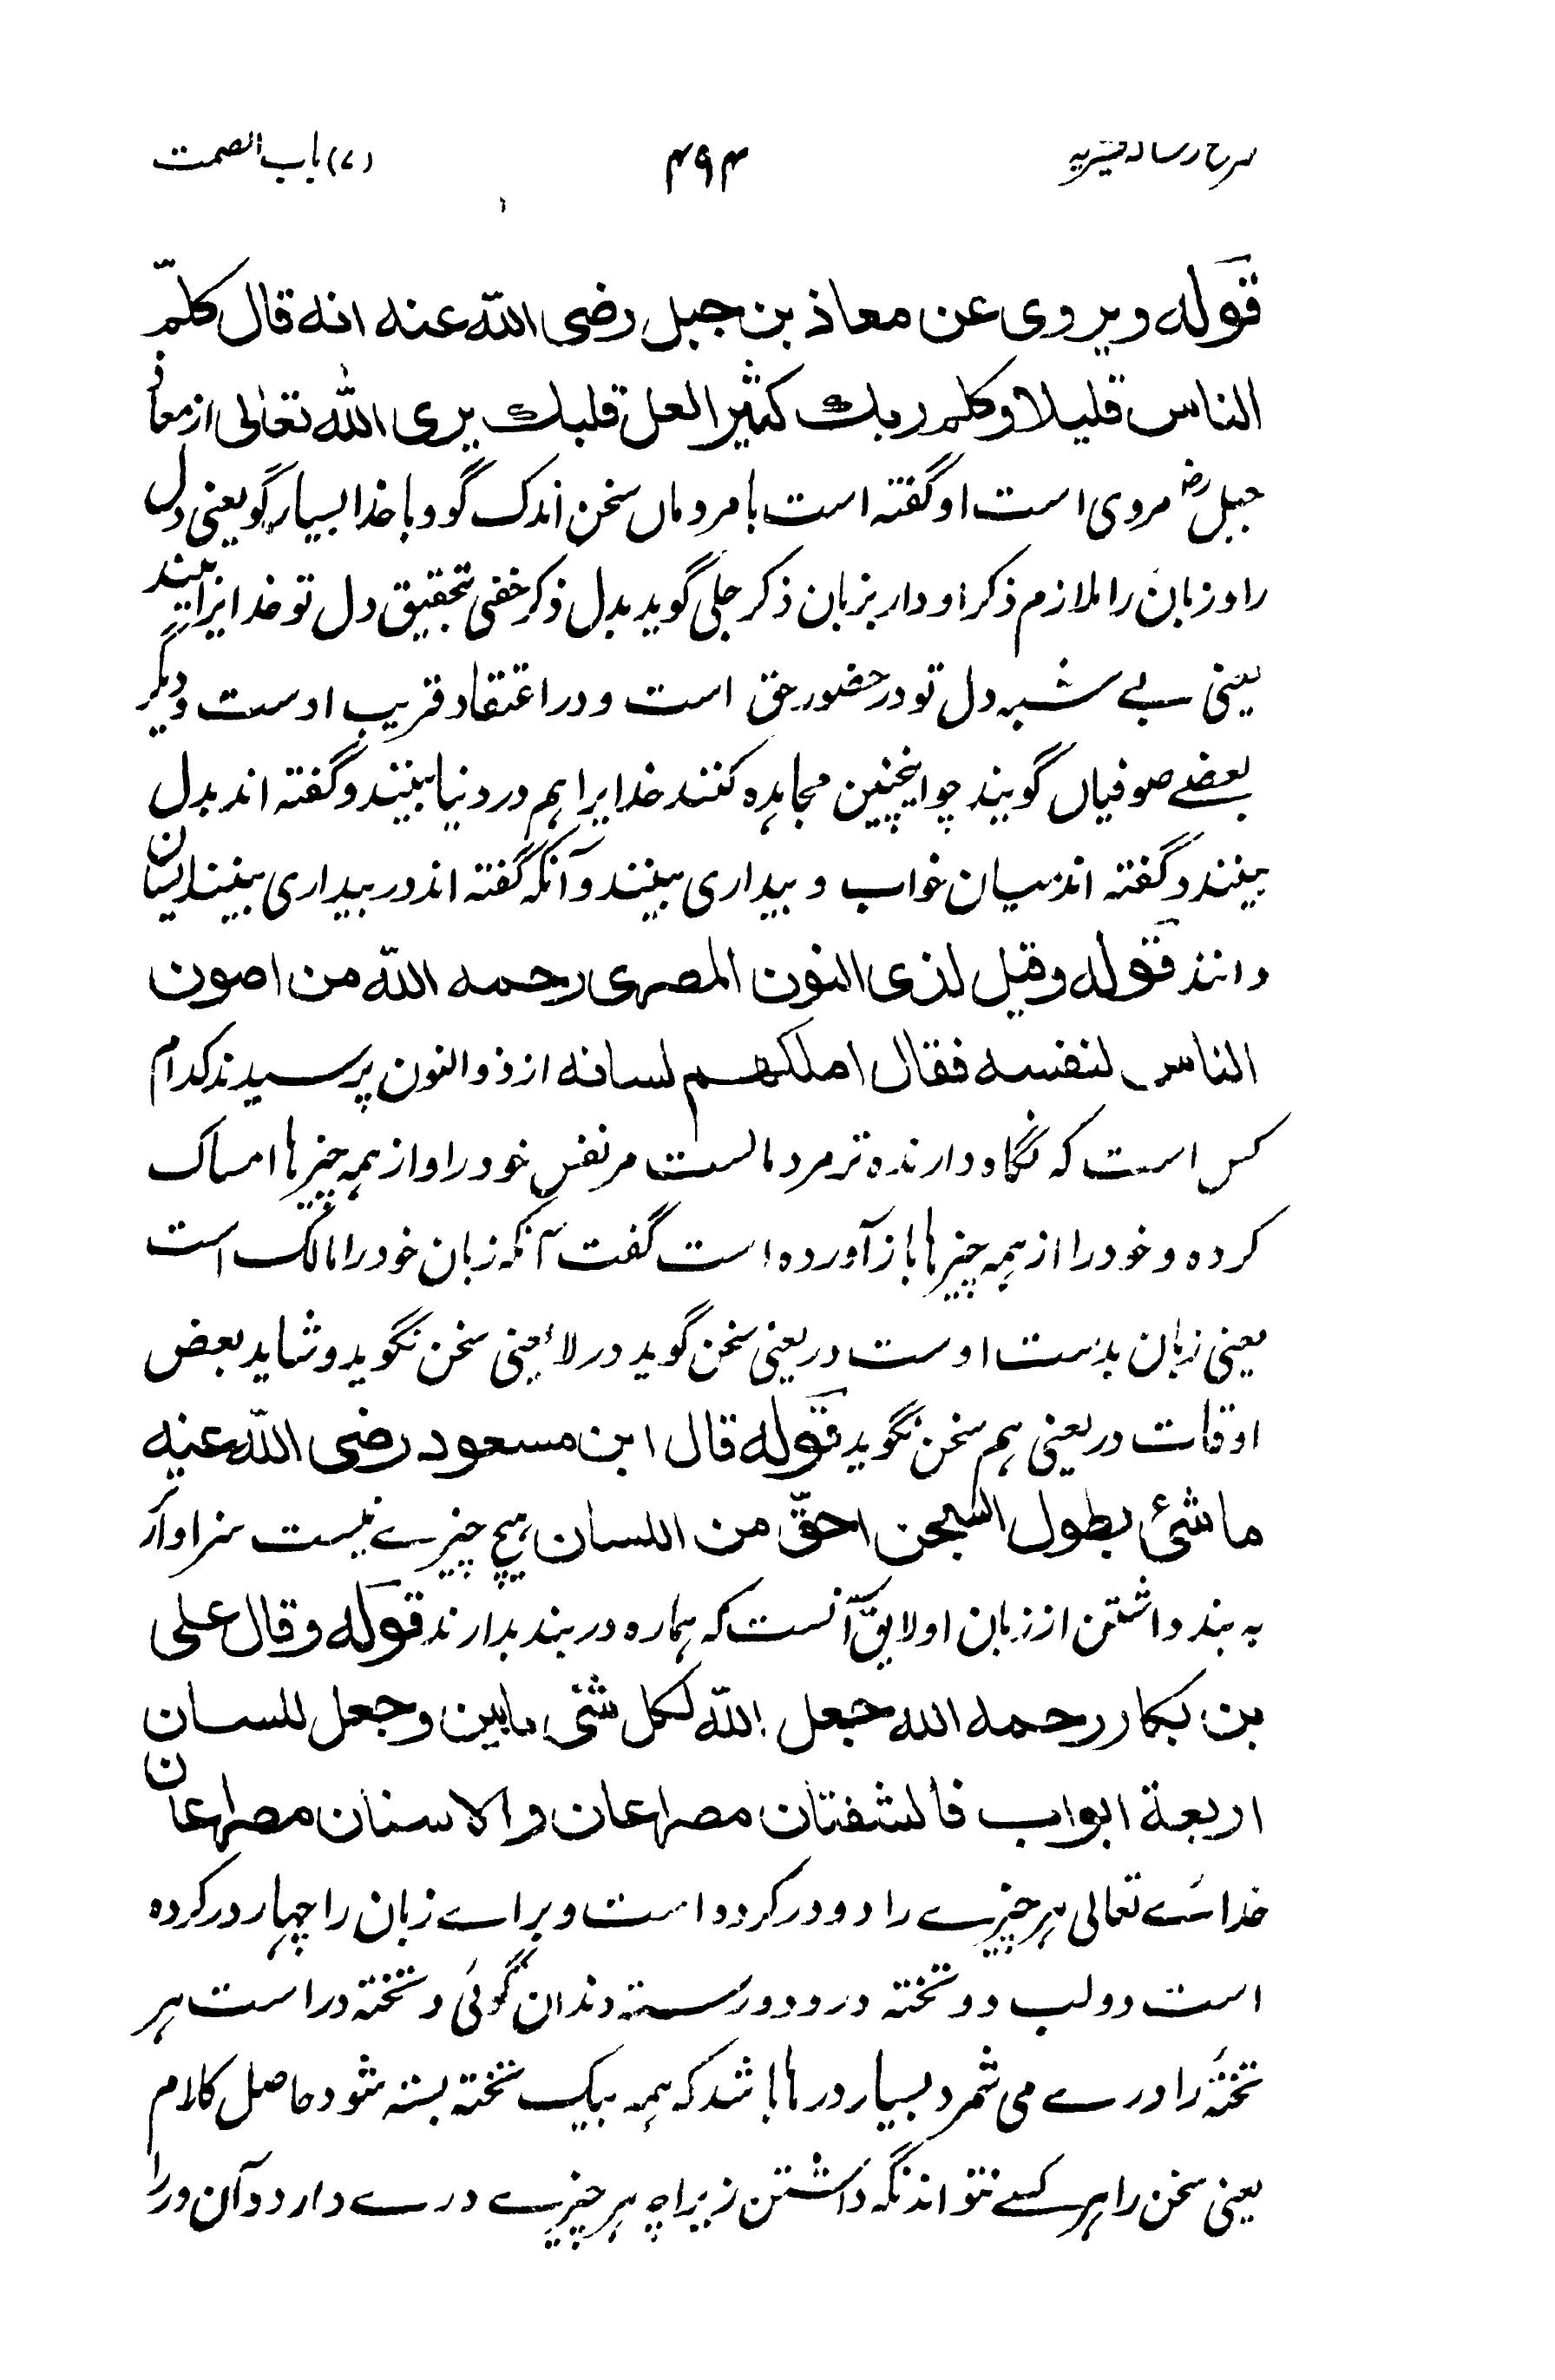 شرح رسالہ قشیریہ ۴۹۴ (۷) باب الصمت
قوله ويروى عن معاذ بن جبل رضى الله عنه انه قال كلّم
الناس قليلا وكلم ربك كثيرا لعل قلبك يرى الله تعالى از معاذ
جبل رضؓ مروی است او گفته است با مردماں سخن اندک گو و با خدا بسیار گو یعنی دل
را و زبان را ملازم ذکر او دار بزبان ذکر جلی گوید بدل ذکر خفی تحقیق دل تو خدایرا بیند
یعنی بے شبہ دل تو در حضور حق است و در اعتقاد قریب اوست و دیگر
بعضے صوفیاں گویند چو اینچنین مجاہدہ کنند خدایرا ہم در دنیا بینند و گفته اند بدل
بینند و گفته اند میان خواب و بیداری بینند و آنکه گفته اند در بیداری بینند ایشان
دانند قوله وقيل لذى النون المصرى رحمه الله من اصون
الناس لنفسه فقال املكهم لسانه از ذوالنون پرسیدند کدام
کس است که نگاه دارنده تر مردمانست مر نفس خود را و از ہمہ چیز ہا امساک
کرده و خود را از ہمہ چیز ہا باز آورده است گفت آنکه زبان خود را مالک است
یعنی زبان بدست اوست در یعنی سخن گوید در لا یعنی سخن نگوید و شاید بعض
اوقات در یعنی ہم سخن نگوید قوله قال ابن مسعود رضى الله عنه
ما شئ بطول السجن احقّ من اللسان، ہیچ چیزے نیست سزاوار
به بند داشتن از زبان او لایق آنست که ہماره در بند بدارند قوله وقال على
بن بكار رحمه الله جعل الله لكل شئ بابين وجعل للسان
اربعة ابواب فالشفتان مصراعان والاسنان مصراعان
خدائے تعالی ہر چیزے را دو در کرده است و براے زبان را چہار در کرده
است دو لب دو تخته در و دو رسته دندان گوئی دو تخته در است ہر
تختهٔ را درے می شمرد بسیار در ہا باشد که ہمہ بیک تخته بسته شود حاصل کلام
یعنی سخن را ہر کسے نتواند نگہ داشتن زیراچہ ہر چیزے درے دارد و آن در را